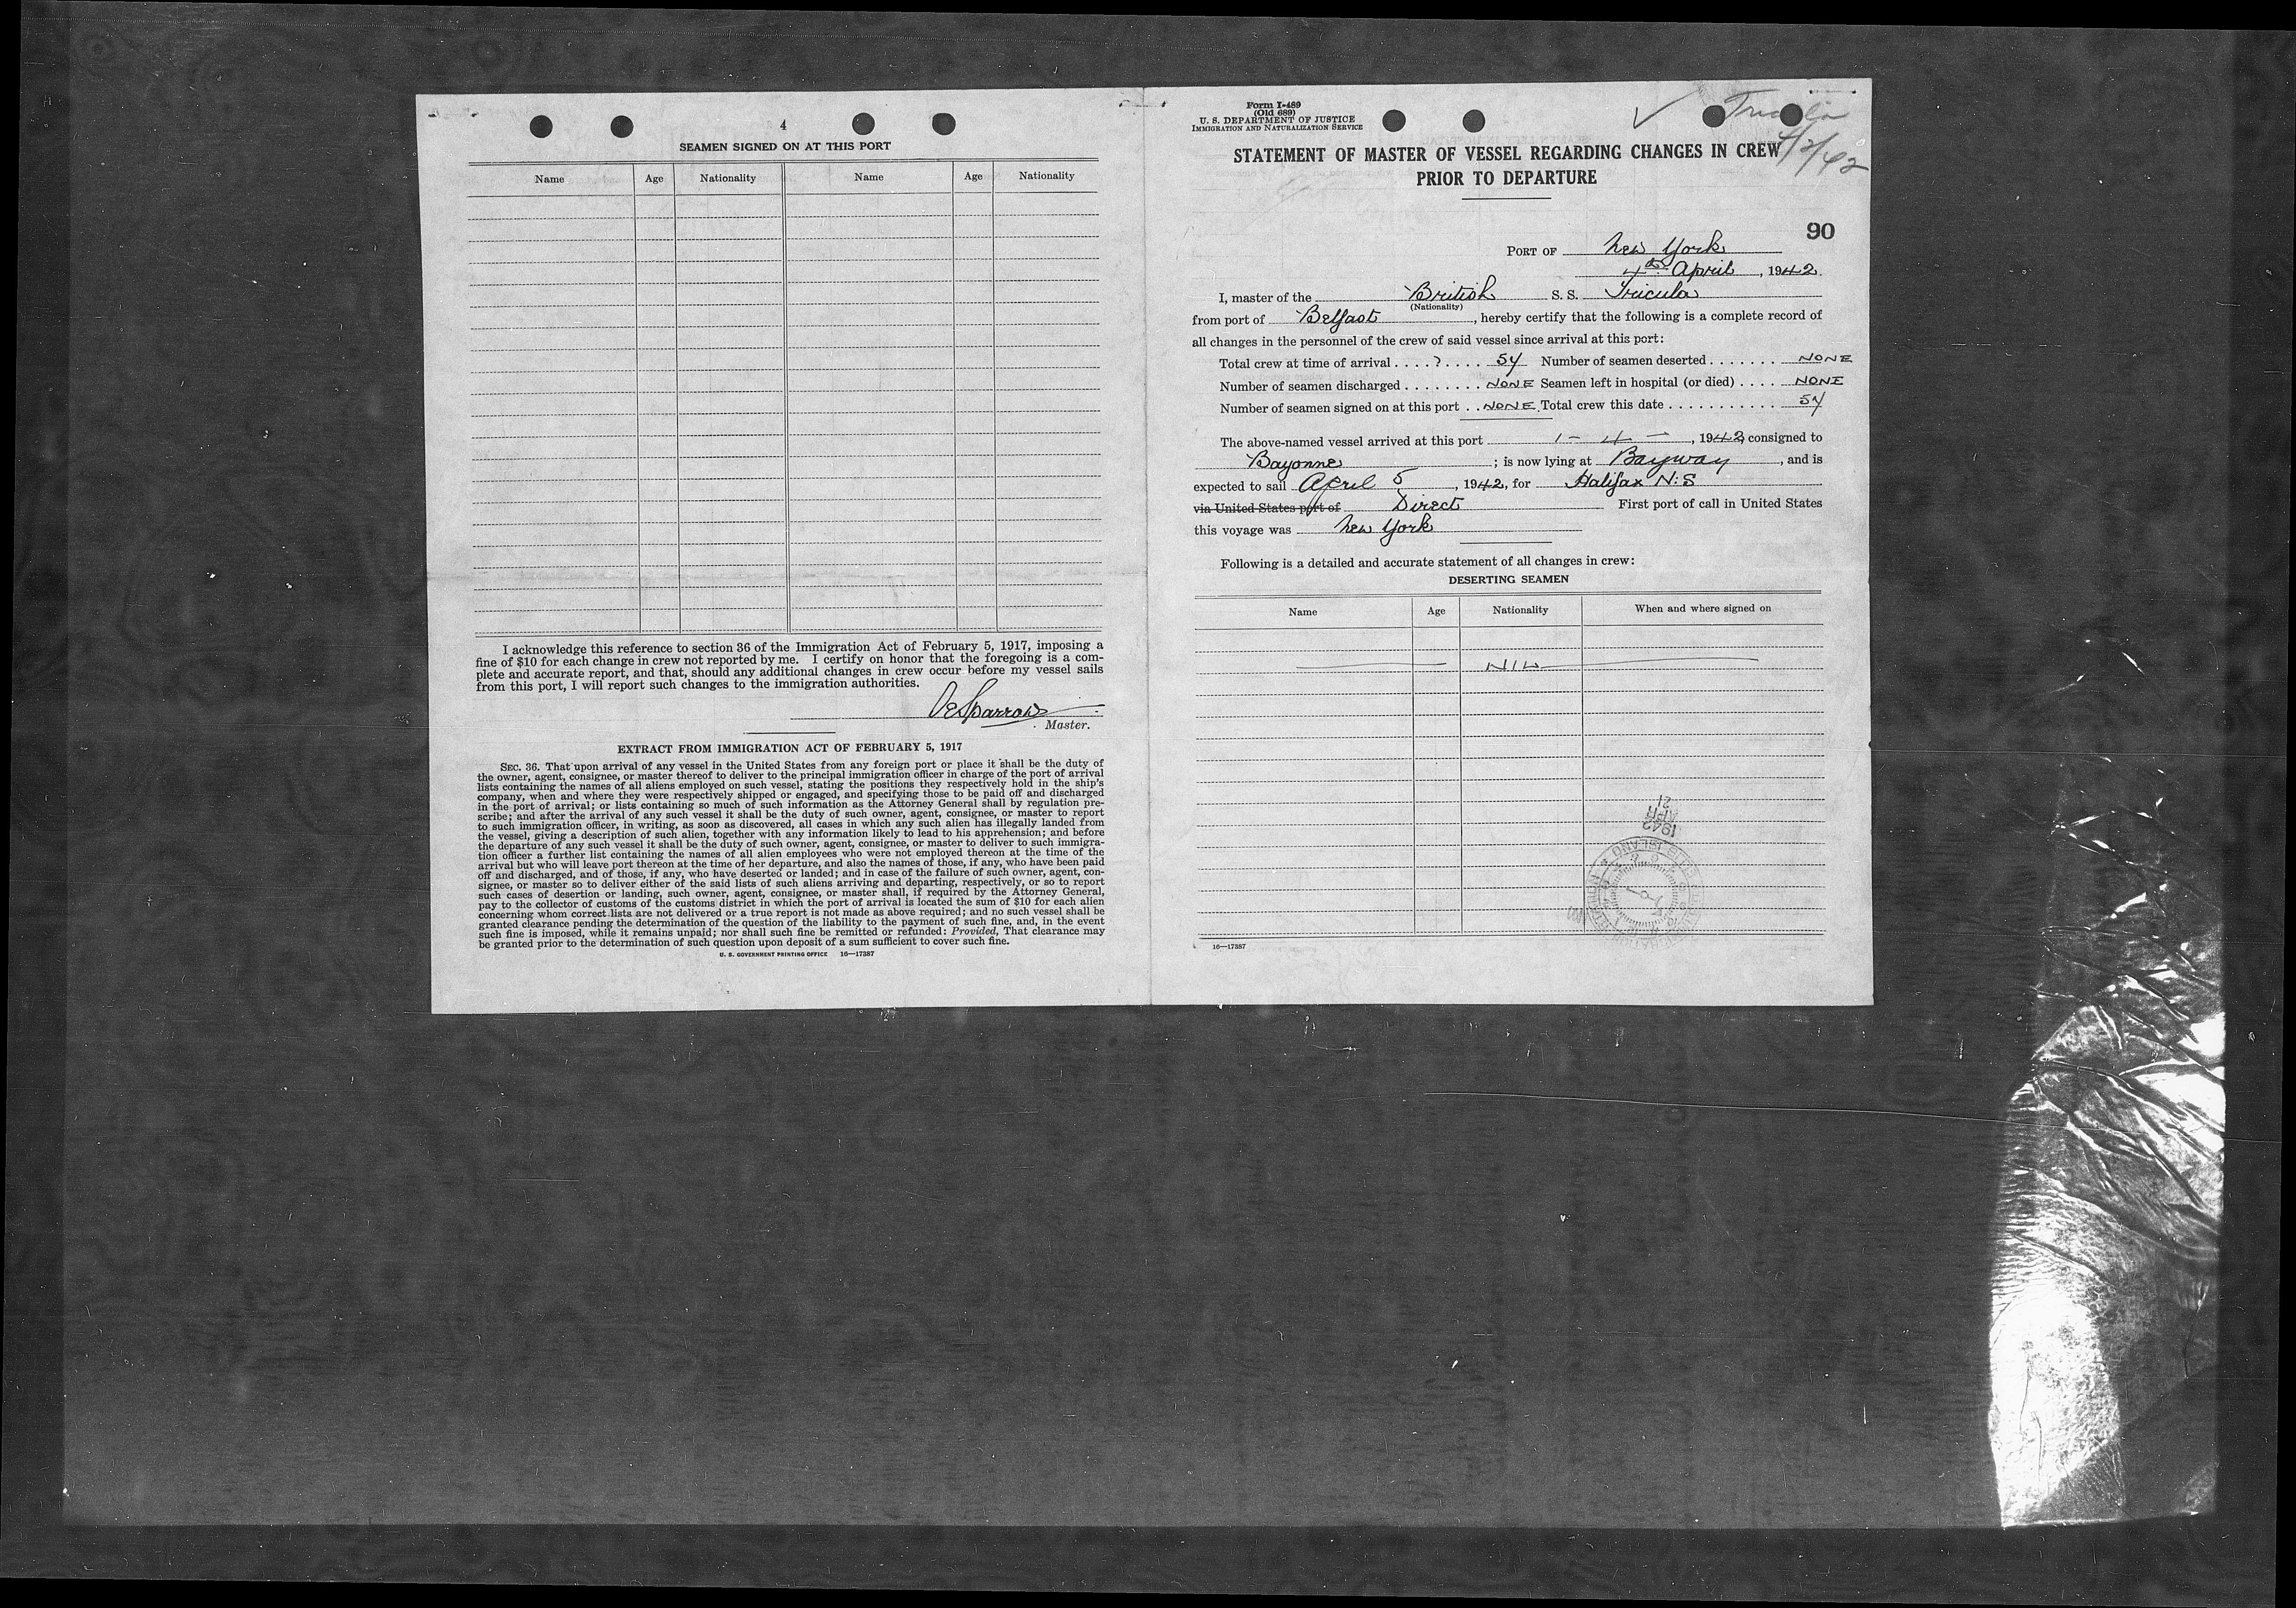 4
SEAMEN SIGNED ON AT THIS PORT
Name Age Nationality Name Age Nationality
I acknowledge this reference to section 36 of the Immigration Act of February 5, 1917, imposing a
fine of $10 for each change in crew not reported by me. I certify on honor that the foregoing is a com-
plete and accurate report, and that, should any additional changes in crew occur before my vessel sails
from this port, I will report such changes to the immigration authorities.
OESparrow
Master.
EXTRACT FROM IMMIGRATION ACT OF FEBRUARY 5, 1917
SEC. 36. That upon arrival of any vessel in the United States from any foreign port or place it shall be the duty of
the owner, agent, consignee, or master thereof to deliver to the principal immigration officer in charge of the port of arrival
lists containing the names of all aliens employed on such vessel, stating the positions they respectively hold in the ship's
company, when and where they were respectively shipped or engaged, and specifying those to be paid off and discharged
in the port of arrival; or lists containing so much of such information as the Attorney General shall by regulation pre-
scribe; and after the arrival of any such vessel it shall be the duty of such owner, agent, consignee, or master to report
to such immigration officer, in writing, as soon as discovered, all cases in which any such alien has illegally landed from
the vessel, giving a description of such alien, together with any information likely to lead to his apprehension; and before
the departure of any such vessel it shall be the duty of such owner, agent, consignee, or master to deliver to such immigra-
tion officer a further list containing the names of all alien employees who were not employed thereon at the time of the
arrival but who will leave port thereon at the time of her departure, and also the names of those, if any, who have been paid
off and discharged, and of those, if any, who have deserted or landed; and in case of the failure of such owner, agent, con-
signee, or master so to deliver either of the said lists of such aliens arriving and departing, respectively, or so to report
such cases of desertion or landing, such owner, agent, consignee, or master shall, if required by the Attorney General,
pay to the collector of customs of the customs district in which the port of arrival is located the sum of $10 for each alien
concerning whom correct lists are not delivered or a true report is not made as above required; and no such vessel shall be
granted clearance pending the determination of the question of the liability to the payment of such fine, and, in the event
such fine is imposed, while it remains unpaid; nor shall such fine be remitted or refunded: Provided, That clearance may
be granted prior to the determination of such question upon deposit of a sum sufficient to cover such fine.
U. S. GOVERNMENT PRINTING OFFICE 16—17387
Form I-489
(Old 689)
U. S. DEPARTMENT OF JUSTICE
IMMIGRATION AND NATURALIZATION SERVICE
STATEMENT OF MASTER OF VESSEL REGARDING CHANGES IN CREW
PRIOR TO DEPARTURE
90
PORT OF New York
4th April, 1942.
I, master of the British S. S. Tricula
(Nationality)
from port of Belfast, hereby certify that the following is a complete record of
all changes in the personnel of the crew of said vessel since arrival at this port:
Total crew at time of arrival . . . . ? . . . . 54 Number of seamen deserted . . . . . . . NONE
Number of seamen discharged . . . . . . . . NONE Seamen left in hospital (or died) . . . . NONE
Number of seamen signed on at this port . . NONE. Total crew this date . . . . . . . . . . . . 54
The above-named vessel arrived at this port 1 - 4 -, 1942, consigned to
Bayonne; is now lying at Bayway, and is
expected to sail April 5, 1942, for Halifax N.S
via United States port of Direct First port of call in United States
this voyage was New York
Following is a detailed and accurate statement of all changes in crew:
DESERTING SEAMEN
Name Age Nationality When and where signed on
NIL
1942
APR
21
16—17387